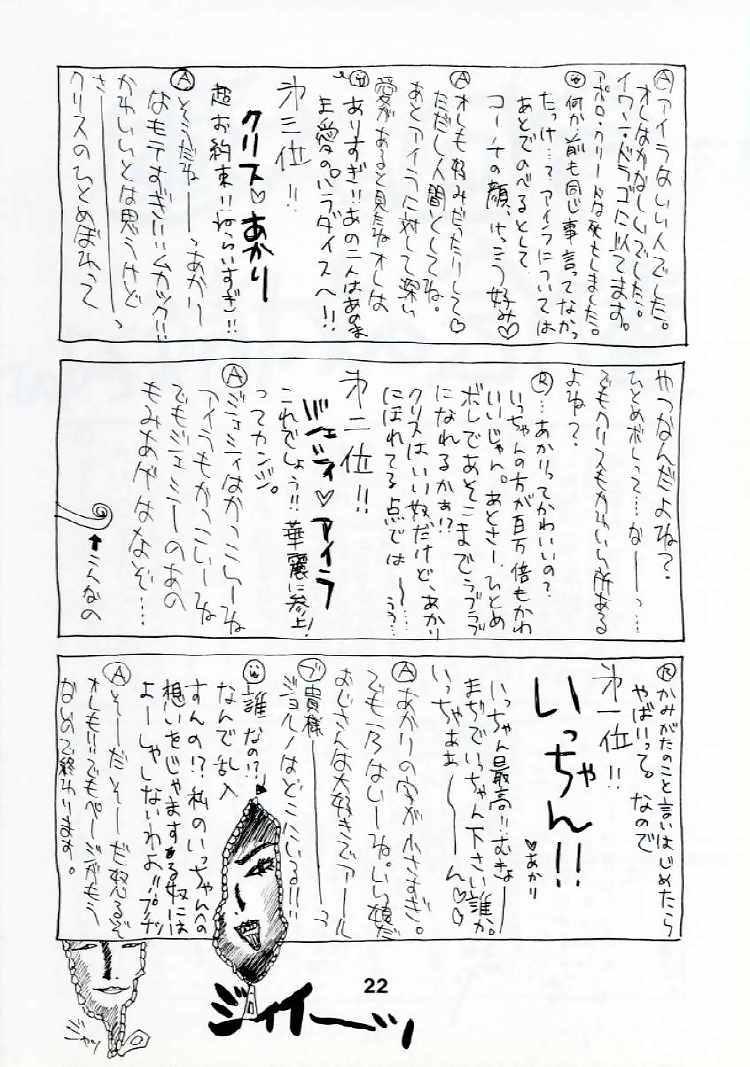 Ⓐアイラはいい人でした。
オレはかなしいでした。
イワン・ドラゴに似てます。
アポロ・クリードは死もしました。
何か前も同じ事言ってなかっ
たっけ…?アイラについては
あとでのべるとして
コーチの顔、けっこう好み♡
Ⓐオレも好みだったりして♡
ただし人間としてね。
あとアイラに対して深い
愛があると見たねオレは
ありすぎ!!あの二人はあのま
ま愛のパラダイスへ!!
第三位!!
クリス♡あかり
超お約束!!ねらいすぎ!!
Ⓐそうだねーーっあかり
なもてすぎ!!ムカック!!
かわいいとは思うけど
さーーーーーっ
クリスのひとめぼれって
やつなんだよね?
ひとめボレって…なーっ…
でもクリスもかわいい所ある
よね?
Ⓡ…あかりってかわいいの?
いっちゃんの方が百万倍もかわ
いいじゃん。あとさー、ひとめ
ボレであそこまでラブラブ
になれるかぁ!?
クリスはいい奴だけど、あかり
にほれてる点ではー…うぅ…
第二位!!
ジェミティ♡アイラ
これでしょう!!華麗に参上!
ってカンジ。
Ⓐジェミティはかっこいーね
アイラもかっこいーね
でもジェミニーのあの
もみあげはなぞ…
↑こんなの
Ⓡかみがたのこと言いはじめたら
やばいって。なので
第一位!!
いっちゃん!!
♡あかり
いっちゃん最高!!むきょー
まぢでいっちゃん下さい誰か。
いっちゃあぁーーん♡♡
Ⓐあかりの字が小さすぎ。
でも一乃はいーね。いい娘だ
おじさんは大好きでアール
ブ貴様ーーーーっ
ジョルノはどこにいる!!!
誰なの!?
なんで乱入
すんの!?私のいっちゃんへの
想いをじゃまする奴には
よーしゃしないわよ!!プンプン
Ⓐそーだそーだ怒るぞ
オレも!!でもページがもう
ないので終わります。
22
ジャッ
ジィイーッ